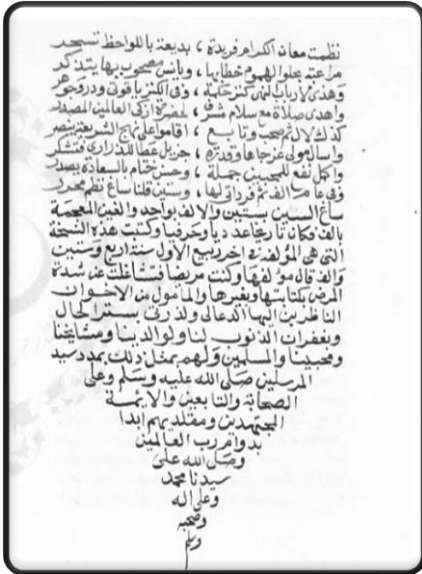 نظمت معان الكرام فريدة ، بديعة باللواحظ تسحر
يجلو الهموم خطابها ، ويانس مصحوب بها يتذكر
وهذى لارباب النهى كنز حكمة ، وفى الكنز ياقوت ودر وجوهر
واهدى صلاة مع سلام مشرف ، لحضرة ازكى العالمين المصدر
كذلك لال ثم صحب وتابع ، اقاموا على نهج الشريعة ينصر
واسال مولى عز جاها وقدرة ، جزيل عطا للذرارى فتشكر
واكمل نفع للمحبين جملة ، وحسن ختام بالسعادة يصدر
وفى عام الف ثم فرد اتى لها ، وستين قلنا ساغ نظم محرر
ساغ الستين بستين والالف بواحد والغين المعجمة
بالف فكان تاريخا عدديا وحرفيا وكتبت هذه النسخة
التى هى للمؤلف فى اخر ربيع الاول سنة اربع وستين
والف قال مولفها وكنت مريضا فتشاغلت عن شدة
المرض بكتابتها وبغيرها والمامول من الاخوان
الناظرين اليها الدعا لى ولذريتى بستر الحال
وبغفران الذنوب لنا ولوالدينا ومشايخنا
ومحبينا والمسلمين ولهم بمثل ذلك بمدد سيد
المرسلين صلى الله عليه وسلم وعلى
الصحابة والتابعين والايمة
المجتهدين ومقلديهم ابدا
بدوام رب العالمين
وصلى الله على
سيدنا محمد
وعلى اله
وصحبه
وسلم